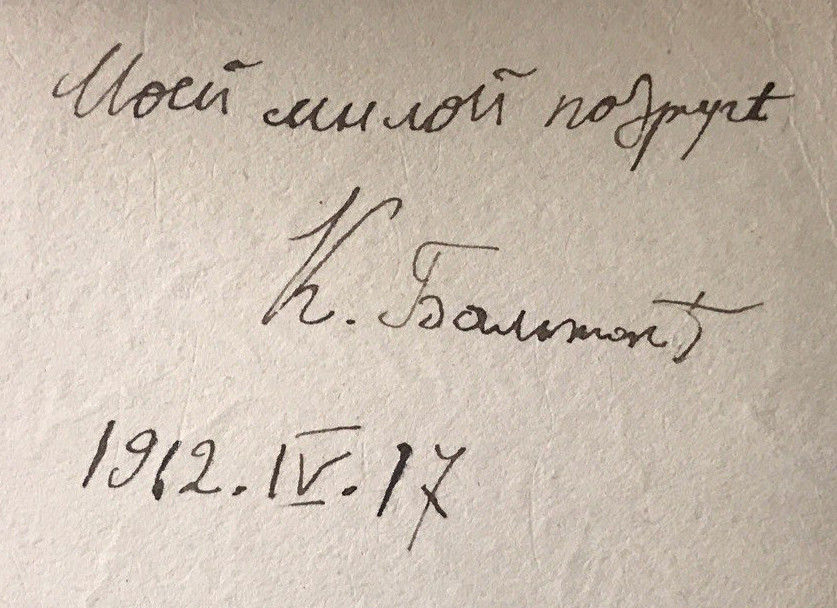 Моей милой подругѣ
К. Бальмонт
1912. IV. 17